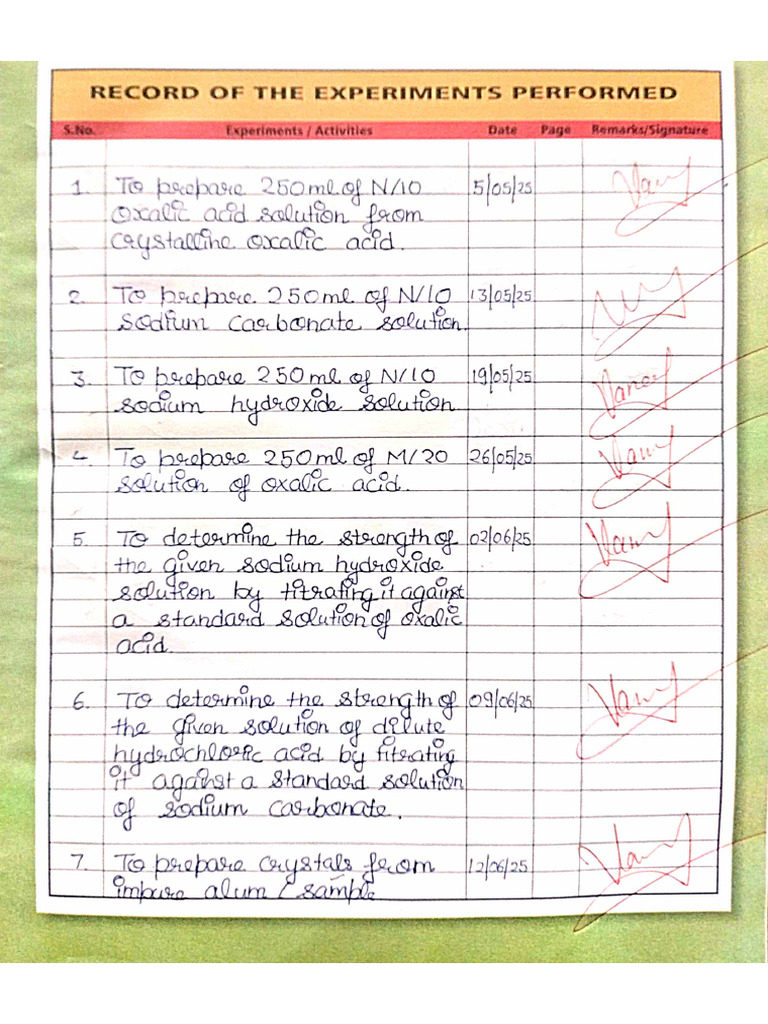 RECORD OF THE EXPERIMENTS PERFORMED
S.No. Experiments / Activities Date Page Remarks/Signature
1. To prepare 250ml of N/10 5/05/25
oxalic acid solution from
crystalline oxalic acid.
2. To prepare 250ml of N/10 13/05/25
sodium carbonate solution.
3. To prepare 250ml of N/10 19/05/25
sodium hydroxide solution
4. To prepare 250ml of M/20 26/05/25
solution of oxalic acid.
5. To determine the strength of 02/06/25
the given sodium hydroxide
solution by titrating it against
a standard solution of oxalic
acid.
6. To determine the strength of 09/06/25
the given solution of dilute
hydrochloric acid by titrating
it against a standard solution
of sodium carbonate.
7. To prepare crystals from 12/06/25
impure alum / sample